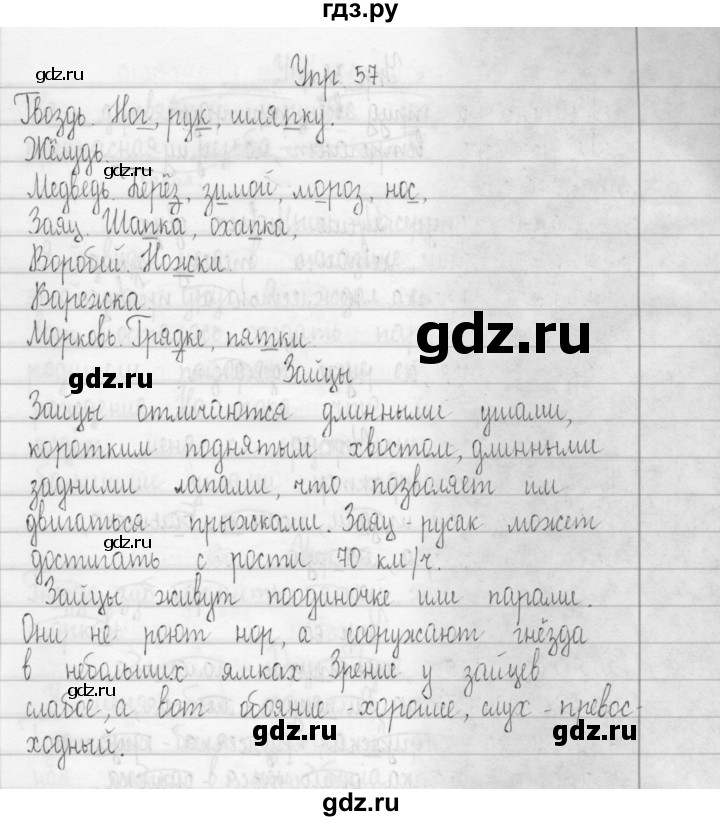 гдз.ру
gdz.ru
Упр. 57
Гвоздь. Ног, рук, шляпку.
Жёлудь.
gdz.ru
Медведь. Берёз, зимой, мороз, нос,
Заяц. Шапка, охапка,
Воробей. Ножки.
Варежка.
Морковь. Грядке, пятки.
gdz.ru
gdz.ru
Зайцы
Зайцы отличаются длинными ушами,
коротким поднятым хвостом, длинными
задними лапами, что позволяет им
двигаться прыжками. Заяц-русак может
gdz.ru
достигать с рости 70 км/ч.
Зайцы живут поодиночке или парами.
Они не роют нор, а сооружают гнёзда
в небольших ямках Зрение у зайцев
gdz.ru
слабое, а вот обояние - хорошее, слух - превос-
ходный.
gdz.ru
gdz.ru